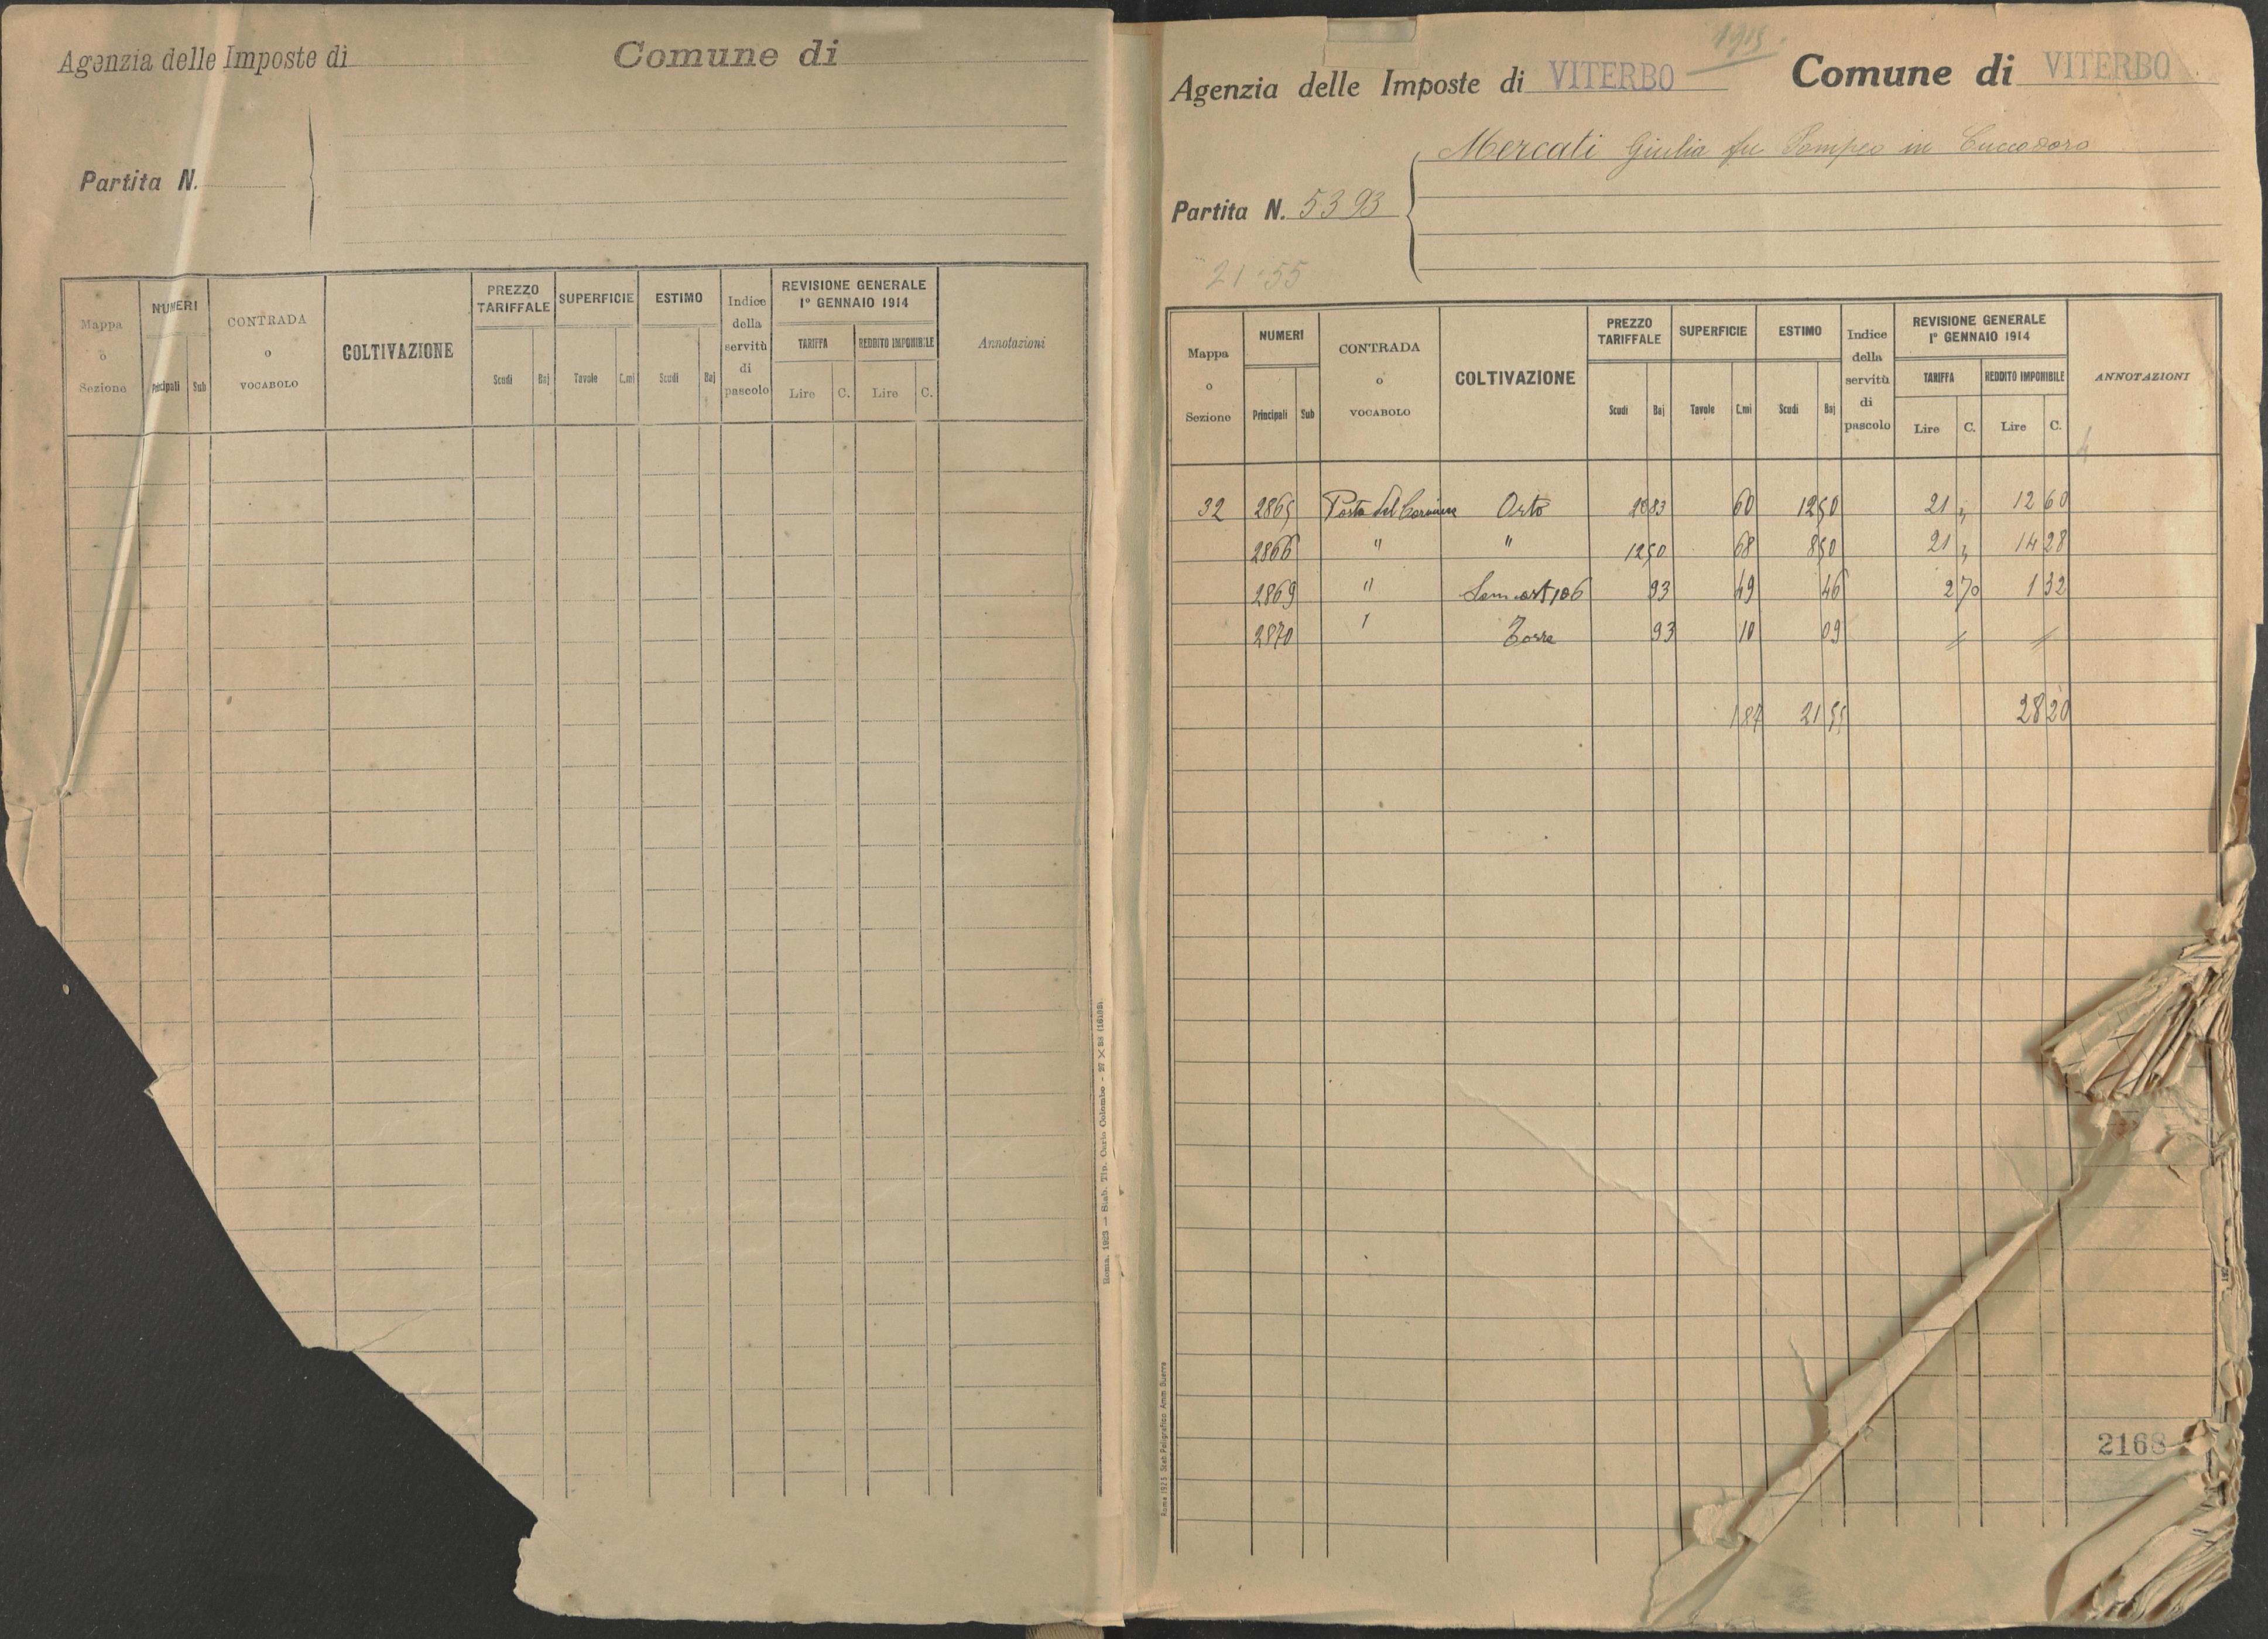 Agenzia delle Imposte di
Comune di
Partita N.
Mappa o Sezione
NUMERI
Principali Sub
CONTRADA o VOCABOLO
COLTIVAZIONE
PREZZO TARIFFALE
Scudi Baj
SUPERFICIE
Tavole C.mi
ESTIMO
Scudi Baj
Indice della servitù di pascolo
REVISIONE GENERALE
1° GENNAIO 1914
TARIFFA REDDITO IMPONIBILE
Lire C. Lire C.
Annotazioni
Roma, 1923 — Stab. Tip. Carlo Colombo
1915
Agenzia delle Imposte di VITERBO
Comune di VITERBO
Mercati Giulia fu Pompeo in Cuccodoro
Partita N. 5393
21-55
Mappa o Sezione
NUMERI
Principali Sub
CONTRADA o VOCABOLO
COLTIVAZIONE
PREZZO TARIFFALE
Scudi Baj
SUPERFICIE
Tavole C.mi
ESTIMO
Scudi Baj
Indice della servitù di pascolo
REVISIONE GENERALE
1° GENNAIO 1914
TARIFFA REDDITO IMPONIBILE
Lire C. Lire C.
ANNOTAZIONI
32 2865 Porta del Orto 2083 60 1250 21 " 12 60
2866 " " 1250 68 850 21 " 14 28
2869 " 93 49 46 2 70 1 32
2870 " 93 10 09 // //
1 87 21 55 28 20
Roma 1923 Stab. Poligrafico Amm Guerra
2168